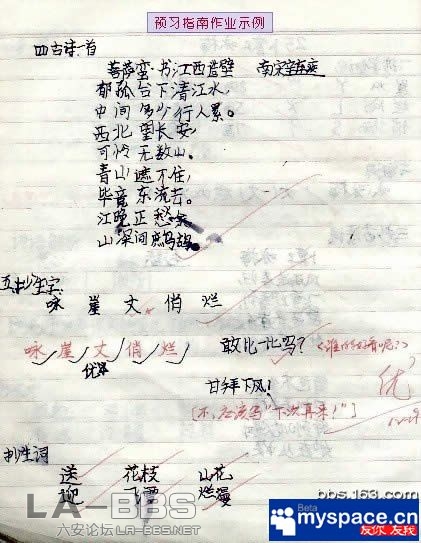 预习指南作业示例
四、古诗一首
菩萨蛮·书江西造壁 南宋 辛弃疾
郁孤台下清江水,
中间多少行人累。
西北望长安,
可怜无数山。
青山遮不住,
毕竟东流去。
江晚正愁余
山深闻鹧鸪
五、抄生字
咏 崖 丈 俏 烂
咏 崖 丈 俏 烂 敢比一比吗?<谁的好看呢?>
优
甘拜下风!
优
[不,应该写"下次再来!"]
抄生词
送 花枝 山花
迎 飞雪 烂漫
LA-BBS
六安论坛LA-BBS.NET
bbs.163.com
Beta
myspace.cn
友你 友我